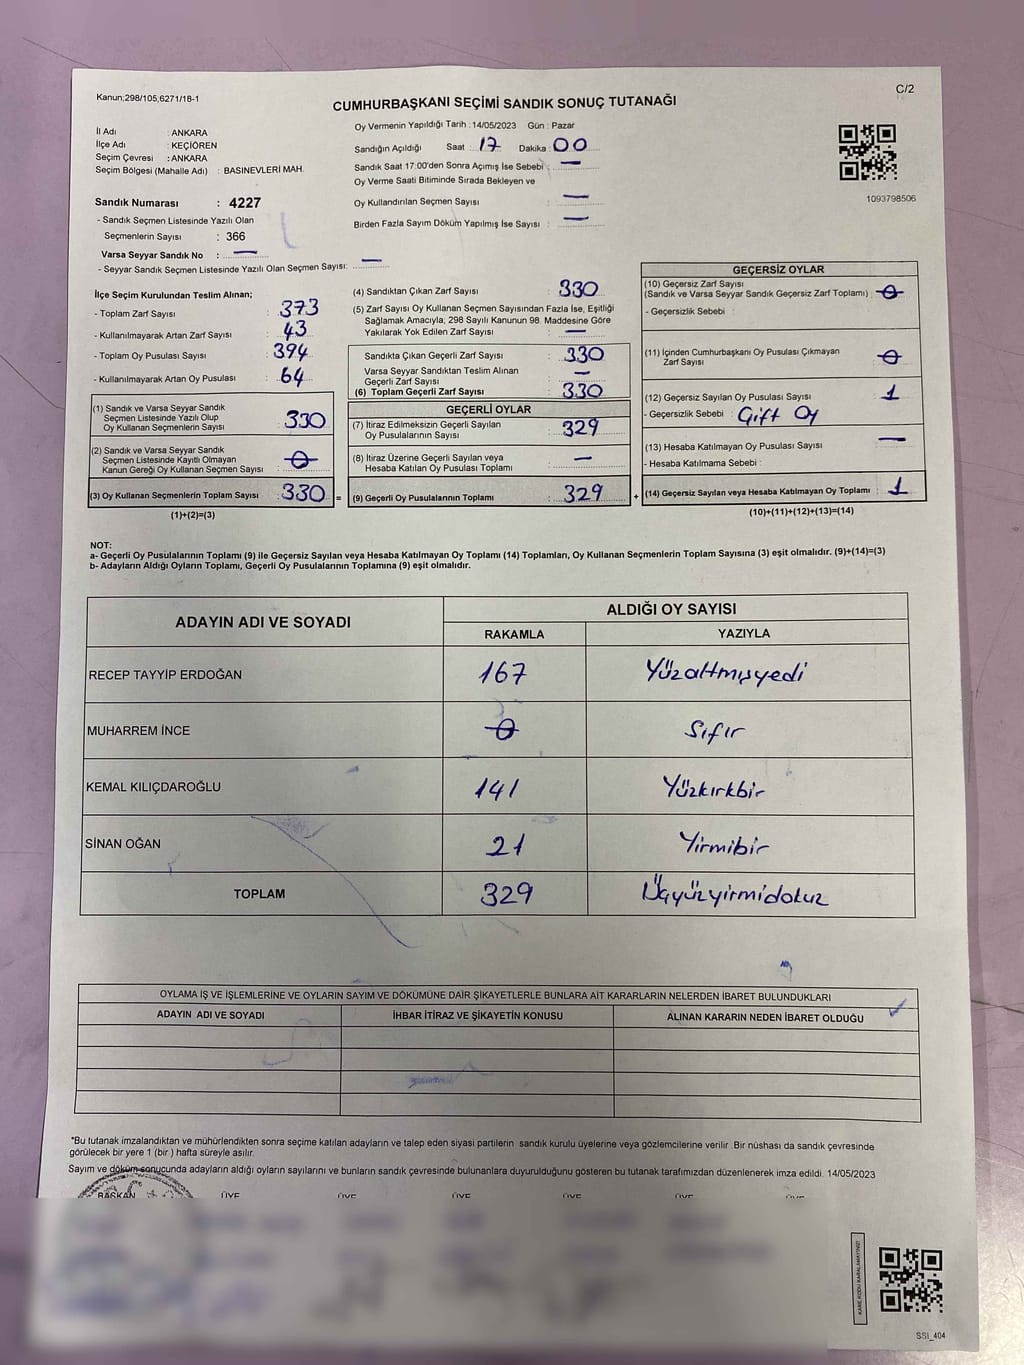 Kanun;298/105,6271/18-1
C/2
CUMHURBAŞKANI SEÇİMİ SANDIK SONUÇ TUTANAĞI
İl Adı : ANKARA
İlçe Adı : KEÇİÖREN
Seçim Çevresi : ANKARA
Seçim Bölgesi (Mahalle Adı) : BASINEVLERİ MAH.
Sandık Numarası : 4227
- Sandık Seçmen Listesinde Yazılı Olan
Seçmenlerin Sayısı : 366
Varsa Seyyar Sandık No : —
- Seyyar Sandık Seçmen Listesinde Yazılı Olan Seçmen Sayısı: —
Oy Vermenin Yapıldığı Tarih : 14/05/2023 Gün : Pazar
Sandığın Açıldığı Saat : 17 Dakika : 00
Sandık Saat 17:00'den Sonra Açımış İse Sebebi : —
Oy Verme Saati Bitiminde Sırada Bekleyen ve
Oy Kullandırılan Seçmen Sayısı : —
Birden Fazla Sayım Döküm Yapılmış İse Sayısı : —
1093798506
İlçe Seçim Kurulundan Teslim Alınan;
- Toplam Zarf Sayısı : 373
- Kullanılmayarak Artan Zarf Sayısı : 43
- Toplam Oy Pusulası Sayısı : 394
- Kullanılmayarak Artan Oy Pusulası : 64
(1) Sandık ve Varsa Seyyar Sandık
Seçmen Listesinde Yazılı Olup
Oy Kullanan Seçmenlerin Sayısı : 330
(2) Sandık ve Varsa Seyyar Sandık
Seçmen Listesinde Kayıtlı Olmayan
Kanun Gereği Oy Kullanan Seçmen Sayısı : 0
(3) Oy Kullanan Seçmenlerin Toplam Sayısı : 330 =
(1)+(2)=(3)
(4) Sandıktan Çıkan Zarf Sayısı : 330
(5) Zarf Sayısı Oy Kullanan Seçmen Sayısından Fazla İse, Eşitliği
Sağlamak Amacıyla; 298 Sayılı Kanunun 98. Maddesine Göre
Yakılarak Yok Edilen Zarf Sayısı : —
Sandıkta Çıkan Geçerli Zarf Sayısı : 330
Varsa Seyyar Sandıktan Teslim Alınan
Geçerli Zarf Sayısı : —
(6) Toplam Geçerli Zarf Sayısı : 330
GEÇERLİ OYLAR
(7) İtiraz Edilmeksizin Geçerli Sayılan
Oy Pusulalarının Sayısı : 329
(8) İtiraz Üzerine Geçerli Sayılan veya
Hesaba Katılan Oy Pusulası Toplamı : —
(9) Geçerli Oy Pusulalarının Toplamı : 329 +
GEÇERSİZ OYLAR
(10) Geçersiz Zarf Sayısı
(Sandık ve Varsa Seyyar Sandık Geçersiz Zarf Toplamı) : 0
- Geçersizlik Sebebi :
(11) İçinden Cumhurbaşkanı Oy Pusulası Çıkmayan
Zarf Sayısı : 0
(12) Geçersiz Sayılan Oy Pusulası Sayısı : 1
- Geçersizlik Sebebi : Çift Oy
(13) Hesaba Katılmayan Oy Pusulası Sayısı : —
- Hesaba Katılmama Sebebi :
(14) Geçersiz Sayılan veya Hesaba Katılmayan Oy Toplamı : 1
(10)+(11)+(12)+(13)=(14)
NOT:
a- Geçerli Oy Pusulalarının Toplamı (9) ile Geçersiz Sayılan veya Hesaba Katılmayan Oy Toplamı (14) Toplamları, Oy Kullanan Seçmenlerin Toplam Sayısına (3) eşit olmalıdır. (9)+(14)=(3)
b- Adayların Aldığı Oyların Toplamı, Geçerli Oy Pusulalarının Toplamına (9) eşit olmalıdır.
ADAYIN ADI VE SOYADI ALDIĞI OY SAYISI
RAKAMLA YAZIYLA
RECEP TAYYİP ERDOĞAN 167 Yüzaltmışyedi
MUHARREM İNCE 0 Sıfır
KEMAL KILIÇDAROĞLU 141 Yüzkırkbir
SİNAN OĞAN 21 Yirmibir
TOPLAM 329 Üçyüzyirmidokuz
OYLAMA İŞ VE İŞLEMLERİNE VE OYLARIN SAYIM VE DÖKÜMÜNE DAİR ŞİKAYETLERLE BUNLARA AİT KARARLARIN NELERDEN İBARET BULUNDUKLARI
ADAYIN ADI VE SOYADI İHBAR İTİRAZ VE ŞİKAYETİN KONUSU ALINAN KARARIN NEDEN İBARET OLDUĞU
*Bu tutanak imzalandıktan ve mühürlendikten sonra seçime katılan adayların ve talep eden siyasi partilerin sandık kurulu üyelerine veya gözlemcilerine verilir. Bir nüshası da sandık çevresinde
görülecek bir yere 1 (bir ) hafta süreyle asılır.
Sayım ve döküm sonucunda adayların aldığı oyların sayılarını ve bunların sandık çevresinde bulunanlara duyurulduğunu gösteren bu tutanak tarafımızdan düzenlenerek imza edildi. 14/05/2023
BAŞKAN ÜYE ÜYE ÜYE ÜYE ÜYE ÜYE
KARE KODU KARALAMAYINIZ!
SSI_404